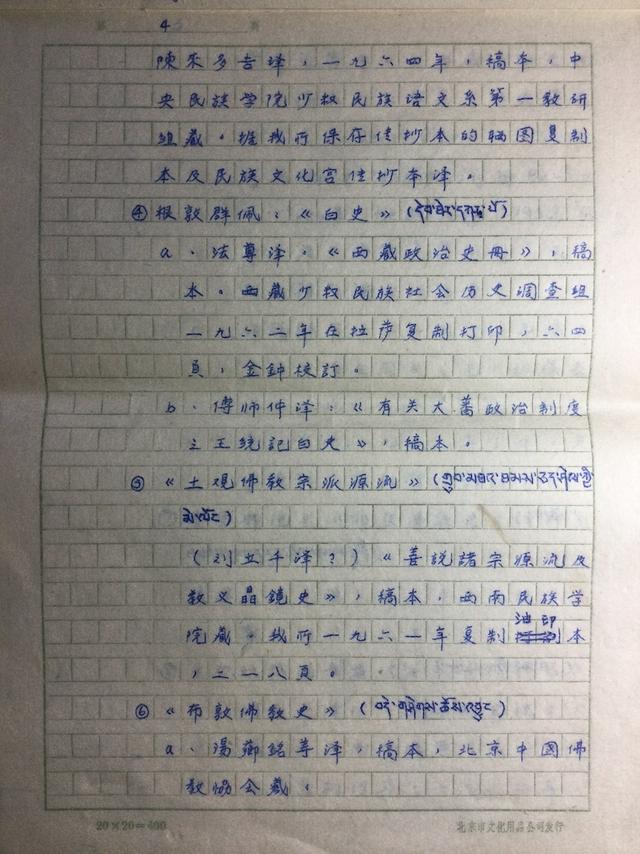 第 4 页
陳來多吉译，一九六四年，稿本，中
央民族学院少数民族语文系第一教研
组藏。据我所保存佳抄本的晒图复制
本及民族文化宫佳抄本译。
④ 根敦群佩：《白史》(དེབ་ཐེར་དཀར་པོ)
a．法尊泽，《西藏政治史册》，稿
本。西藏少数民族社会历史调查组
一九六二年在拉萨复制打印，六四
頁，金鈡校訂。
b．傅师仲泽：《有关大蕃政治制度
之王统記白史》，稿本。
⑤ 《土观佛教宗派源流》(
(刘立千泽？)《善説諸宗源流及
教义晶鏡史》，稿本，西南民族学
院藏。我所一九六一年复制油印本
，二一八頁。
⑥ 《布敦佛教史》(
a．湯薌銘等泽，稿本，北京中國佛
教协会藏．
20×20=400
北京市文化用品公司发行